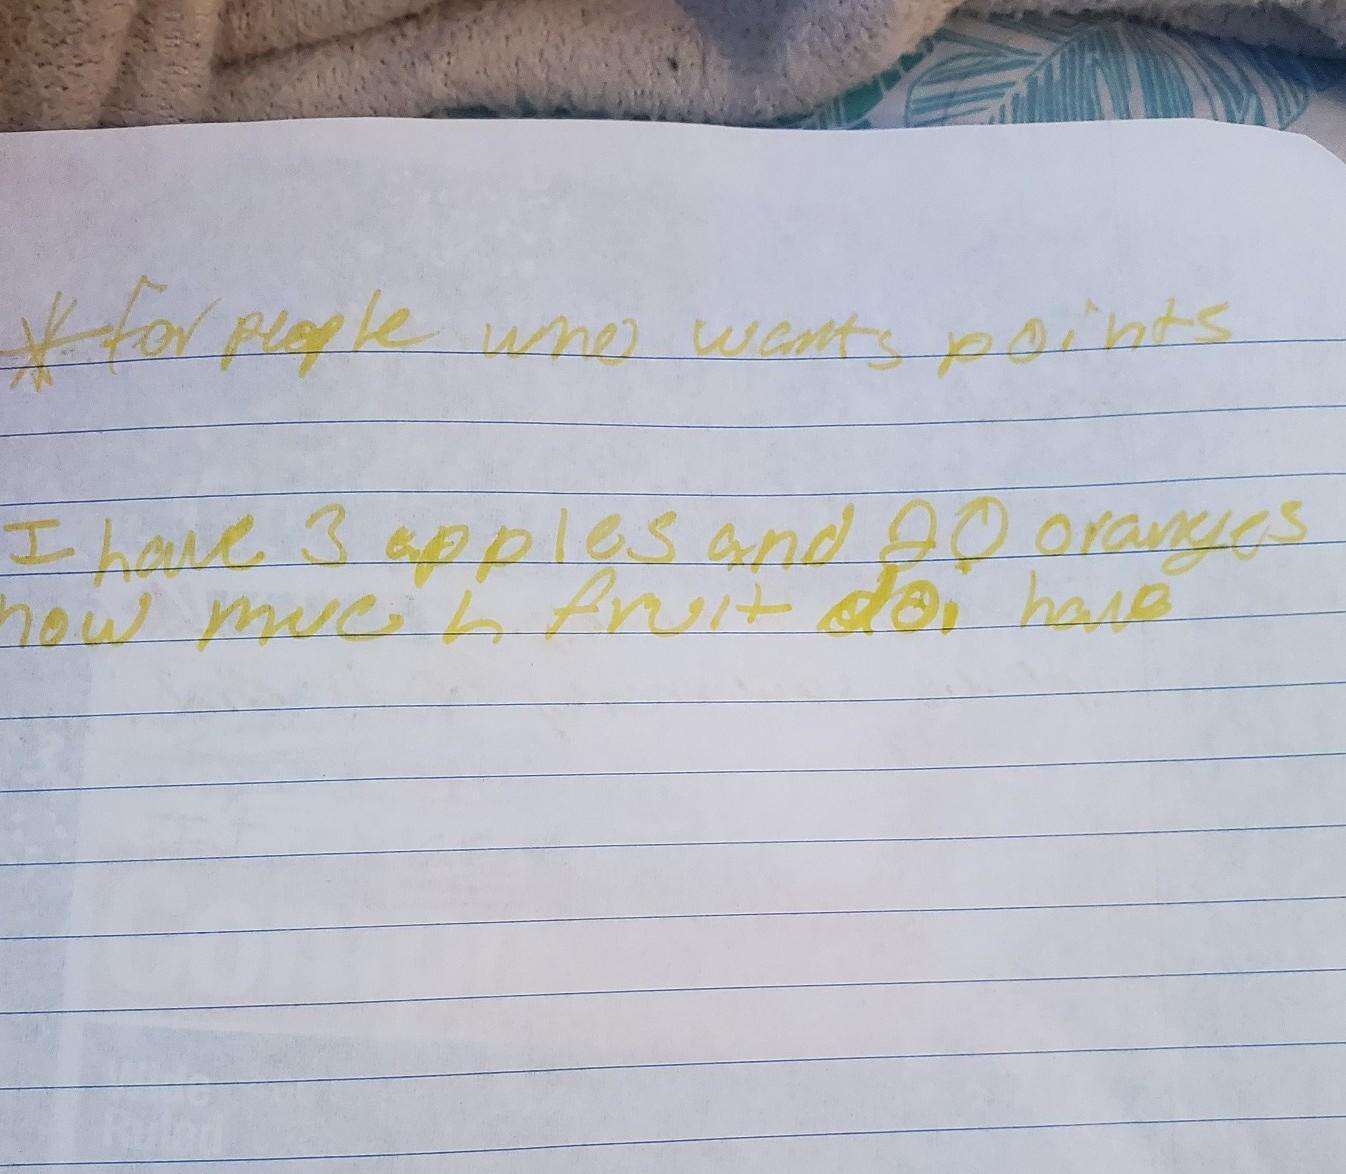 * for people who wants points
I have 3 apples and 20 oranges
how much fruit do i have
Wide
Ruled